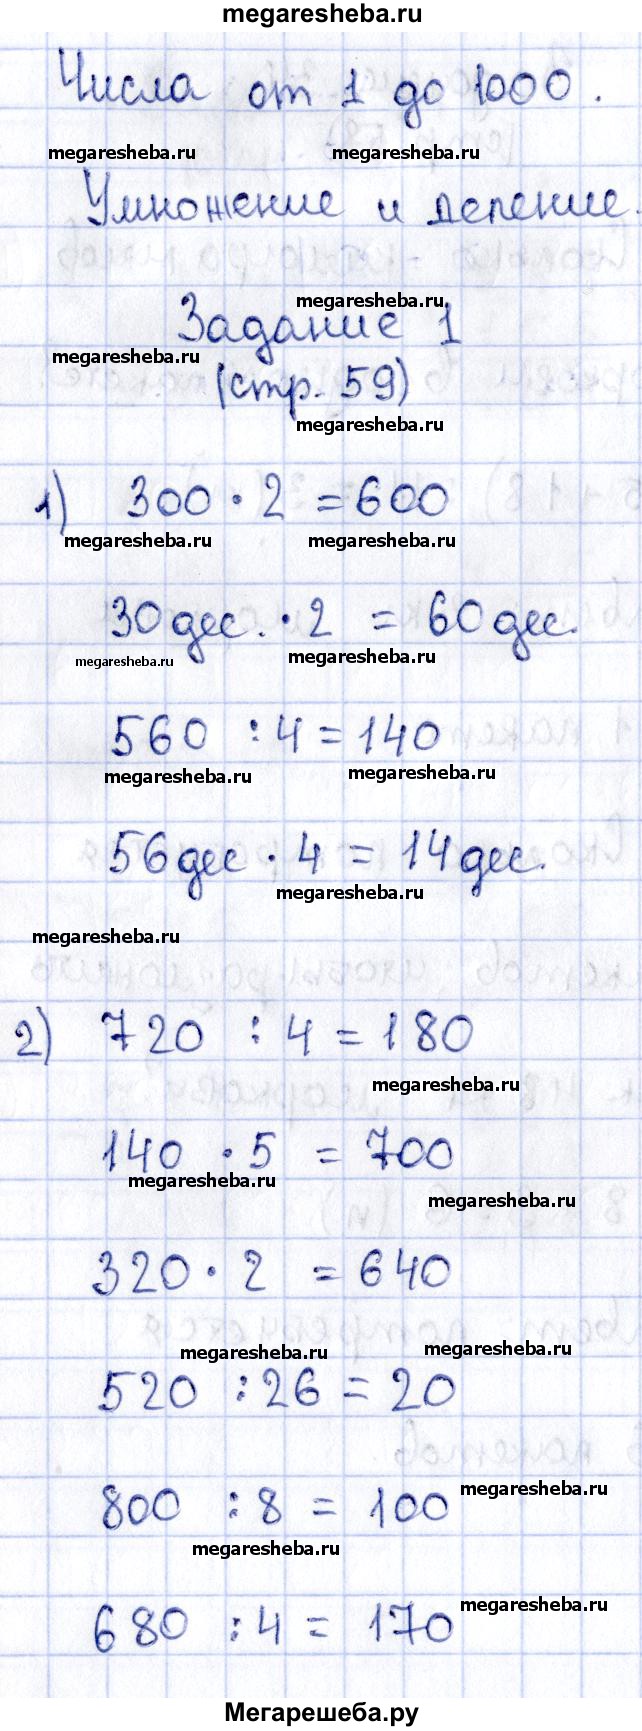 megaresheba.ru
Числа от 1 до 1000.
megaresheba.ru megaresheba.ru
Умножение и деление.
megaresheba.ru
Задание 1
megaresheba.ru
(стр. 59)
megaresheba.ru
1) 300 · 2 = 600
megaresheba.ru megaresheba.ru
30 дес. · 2 = 60 дес.
megaresheba.ru megaresheba.ru
560 : 4 = 140
megaresheba.ru megaresheba.ru
56 дес · 4 = 14 дес.
megaresheba.ru
megaresheba.ru
2) 720 : 4 = 180
megaresheba.ru
140 · 5 = 700
megaresheba.ru megaresheba.ru
320 · 2 = 640
megaresheba.ru megaresheba.ru
520 : 26 = 20
megaresheba.ru
800 : 8 = 100
megaresheba.ru
megaresheba.ru
680 : 4 = 170
Мегарешеба.ру